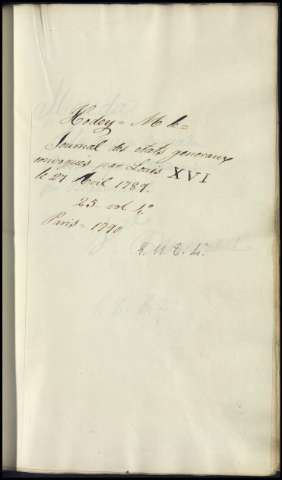 Hodey = M le =
Journal des etats generaux
convoqués par Louis XVI
le 27 Avril 1789.
25 vol 4°
Paris - 1790